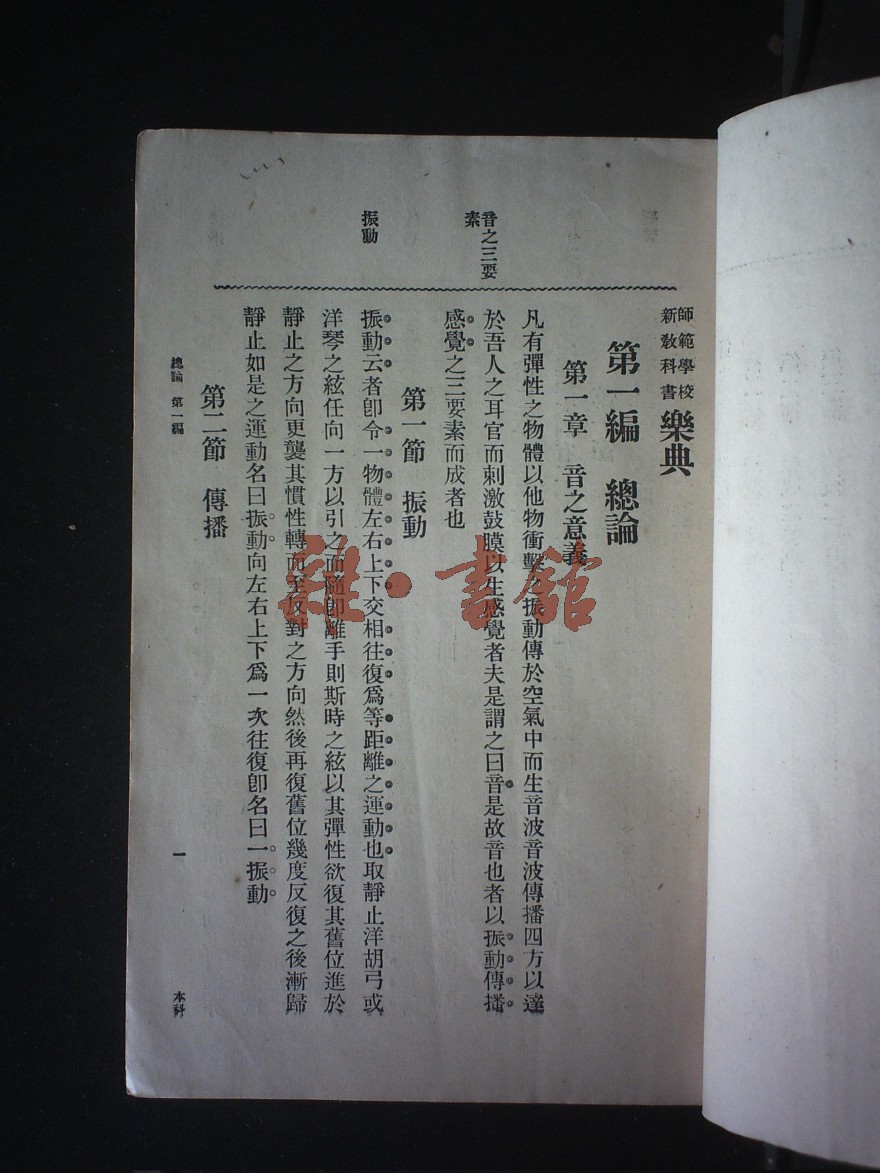 師範學校
新教科書
樂典
第一編 總論
第一章 音之意義
音之三要
素
凡有彈性之物體以他物衝擊之振動傳於空氣中而生音波音波傳播四方以達
於吾人之耳官而刺激鼓膜以生感覺者夫是謂之曰音是故音也者以振動傳播
感覺之三要素而成者也
第一節 振動
振動
振動云者卽令一物體左右上下交相往復爲等距離之運動也取靜止洋胡弓或
洋琴之絃任向一方以引之而隨卽離手則斯時之絃以其彈性欲復其舊位進於
靜止之方向更襲其慣性轉而至反對之方向然後再復舊位幾度反復之後漸歸
靜止如是之運動名曰振動向左右上下爲一次往復卽名曰一振動
第二節 傳播
總論 第一編
一
本科
雜·書館